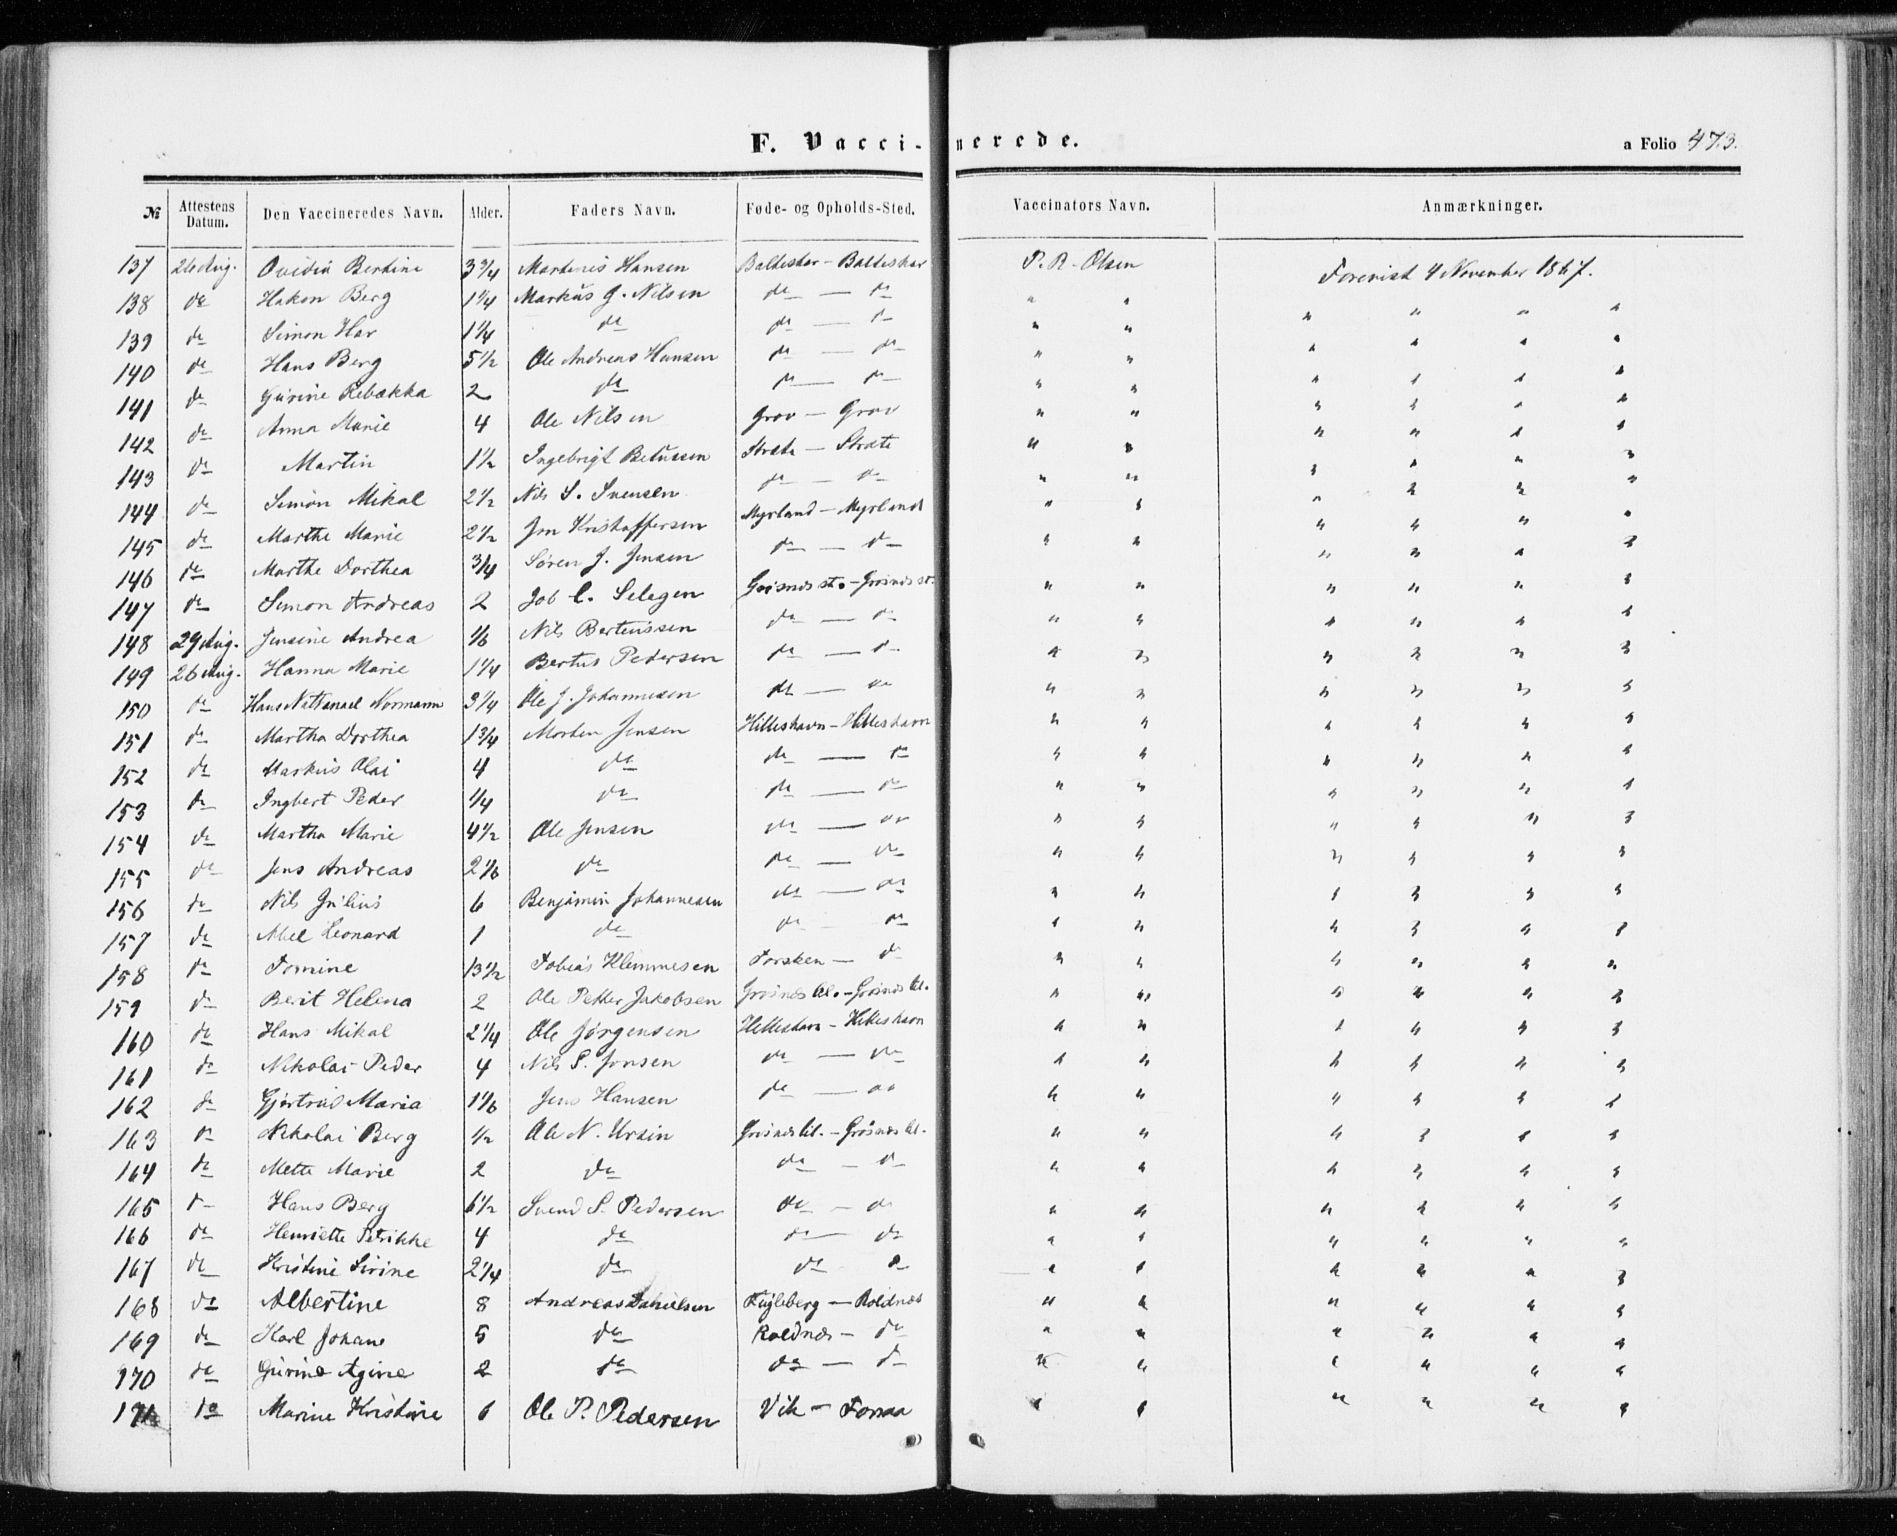 F. Vaccinerede.
a Folio 473.
№ Attestens Datum. Den Vaccineredes Navn. Alder. Faders Navn. Føde- og Opholds-Sted. Vaccinators Navn. Anmærkninger.
137 26 Aug. Ovidia Bertine 3 3/4 Martinis Hansen Balteskar - Balteskar P. R. Olsen Forevist 4 November 1867.
138 do Hakon Berg 1 1/4 Markus J. Nilsen do — do " " " " " "
139 do Simon Har 1 1/4 do do — do " " " " " "
140 do Hans Berg 5 1/2 Ole Andreas Hansen do — do " " " " " "
141 do Gurine Rebækka 2 do do — do " " " " " "
142 do Anna Marie 4 Ole Nilsen Grov — Grov " " " " " "
143 do Martin 1 1/2 Ingebrigt Betussen Stræte — Stræte " " " " " "
144 do Simon Mikal 2 1/2 Nils S. Svensen do — do " " " " " "
145 do Marthe Marie 2 1/2 Jon Kristoffersen Myrland — Myrland " " " " " "
146 do Marthe Dorthea 3/4 Søren J. Jensen do — do " " " " " "
147 do Simon Andreas 2 Job C. Selegen Grøsnæs st. - Grøsnæs st. " " " " " "
148 29 Aug. Jensine Andrea 1/6 Nils Berteussen do — do " " " " " "
149 26 Aug. Hanna Marie 1 1/4 Bertus Pedersen do — do " " " " " "
150 do Hans Nathanael Normann 3 1/4 Ole J. Johannesen do — do " " " " " "
151 do Martha Dorthea 1 3/4 Morten Jensen Hilleshavn - Hilleshavn " " " " " "
152 do Markus Olai 4 do do — do " " " " " "
153 do Ingbert Peder 1/4 do do — do " " " " " "
154 do Martha Marie 4 1/2 Ole Jensen do — do " " " " " "
155 do Jens Andreas 2 1/6 do do — do " " " " " "
156 do Nils Julius 6 Benjamin Johannesen do — do " " " " " "
157 do Abel Leonard 1 do do - do " " " " " "
158 do Tomine 13 1/2 Tobias Klemmesen Torsken — do " " " " " "
159 do Berit Helena 2 Ole Petter Jakobsen Grøsnæs lil. - Grøsnæs lil. " " " " " "
160 do Hans Mikal 2 1/4 Ole Jørgensen Hilleshavn - Hilleshavn " " " " " "
161 do Nikolai Peder 4 Nils S. Jonsen do — do " " " " " "
162 do Gjertrud Maria 1 1/6 Jens Hansen do — do " " " " " "
163 do Nikolai Berg 1/2 Ole N. Ursin Grøsnæs lil. - Grøsnæs lil. " " " " " "
164 do Mette Marie 2 do do - do " " " " " "
165 do Hans Berg 6 1/2 Svend S. Pedersen do - do " " " " " "
166 do Henriette Petrikke 4 do do — do " " " " " "
167 do Kristine Sirine 2 1/4 do do do " " " " " "
168 do Albertine 8 Andreas Danielsen Fugleberg — Roldnæs " " " " " "
169 do Karl Johane 5 do Roldnæs — do " " " " " "
170 do Gurine Agine 2 do do — do " " " " " "
171 do Marine Kristine 6 Ole P. Pedersen Vik - Forraa " " " " " "